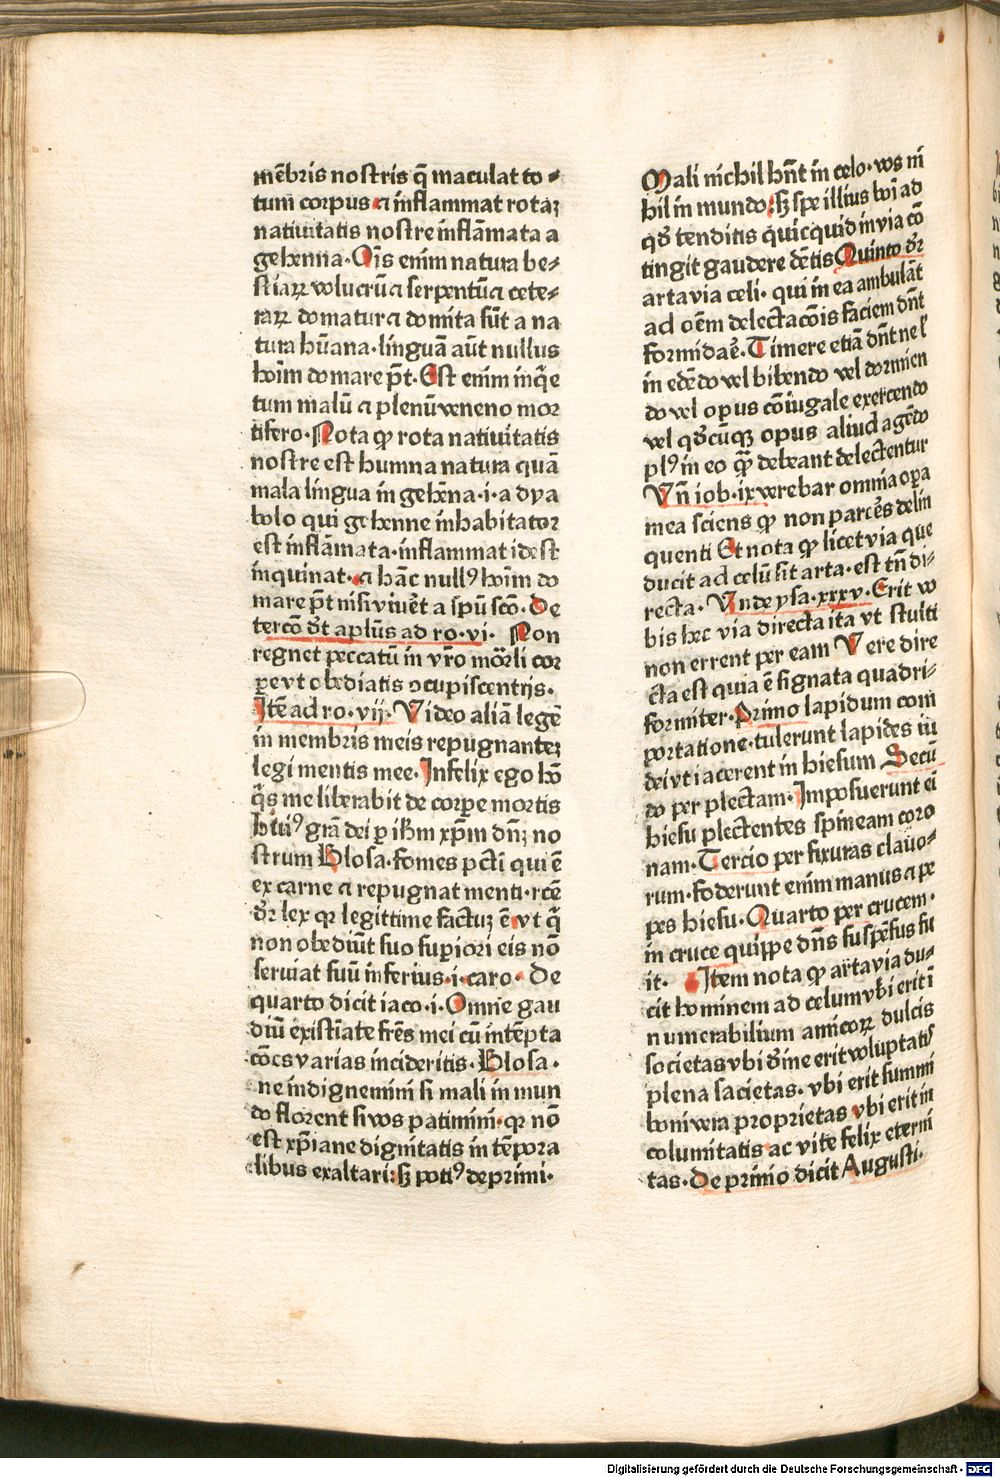 mēbris nostris q̄ maculat to⸗
tum corpus ⁊ inflammat rotaꝫ
natiuitatis nostre inflāmata a
gehenna· Oīs enim natura be⸗
stiaꝝ volucrū ⁊ serpentū ⁊ cete⸗
raꝝ domatur ⁊ domita sūt a na
tura hūana· linguā aūt nullus
hoīm domare pōt· Est enim inq̇e
tum malū ⁊ plenū veneno mor
tifero· Nota ꝙ rota natiuitatis
nostre est humna natura quā
mala lingua in gehēna ·i· a dya
bolo qui gehenne inhabitator
est inflāmata· inflammat idest
inquinat· ⁊ hāc nullꝰ hoīm do
mare pōt nisi viuēt a spū scō· De
tercō dt̄ aplūs ad ro· vi· Non
regnet peccatū in vr̄o mōrli cor
ꝑe vt obediatis ꝯcupiscentijs·
Itē ad ro· vij· Video aliā legē
in membris meis repugnanteꝫ
legi mentis mee· Infelix ego hō
q̇s me liberabit de corpe mortis
htiꝰ grā dei ꝑ ihm xp̄m dn̄ꝫ no
strum Glosa· fomes pctī qui ē
ex carne ⁊ repugnat menti· rcē
dr̄ lex qꝛ legittime factuꝫ ē vt q̇
non obediūt suo suꝑiori eis nō
seruiat suū inferius ·i· caro· De
quarto dicit iaco ·i· Omne gau
diū existīate frēs mei cū intēpta
cōēs varias incideritis· Glosa·
ne indignemini si mali in mun
do florent si vos patimini· qꝛ nō
est xp̄iane dignitatis in tēpora
libus exaltari: sꝫ potiꝰ deprimi·
Mali nichil hn̄t in celo· vos ni
hil in mundo: sꝫ spe illius boī ad
qd̄ tenditis quicquid in via cō
tingit gaudere dētis Quinto dr̄
arta via celi· qui in ea ambulāt
ad oēm delectacōis faciem dn̄t
formidaē· Timere etiā dn̄t ne l̄
in edēdo vel bibendo vel dormien
do vel opus cōiugale exercendo
vel qd̄cūqꝫ opus aliud agēdo
plꝰ in eo qꝫ̄ debeant delectentur
Vn̄ iob· ix verebar omnia oꝑa
mea sciens ꝙ non parcēs delin
quenti Et nota ꝙ licet via que
ducit ad celū sit arta· est tn̄ di⸗
recta· Vnde ysa· xxxv· Erit vo
bis hec via directa ita vt stulti
non errent per eam Vere dire
cta est quia ē signata quadri⸗
formiter· Primo lapidum com
portatione· tulerunt lapides iu
dei vt iacerent in hiesum Secū
do per plectam· Imposuerunt eī
hiesu plectentes spineam coro
nam· Tercio per fixuras clauo⸗
rum· foderunt enim manus ⁊ pe
pes hiesu· Quarto per crucem·
in cruce quippe dn̄s suspēsus fu
it· Item nota ꝙ arta via du⸗
cit hominem ad celum vbi erit ī
numerabilium amicoꝝ dulcis
societas vbi sine erit voluptatis
plena sacietas· vbi erit summi
boni vera proprietas vbi erit in
columitatis ac vite felix eterni
tas· De primo dicit Augusti·
Digitalisierung gefördert durch die Deutsche Forschungsgemeinschaft · DFG